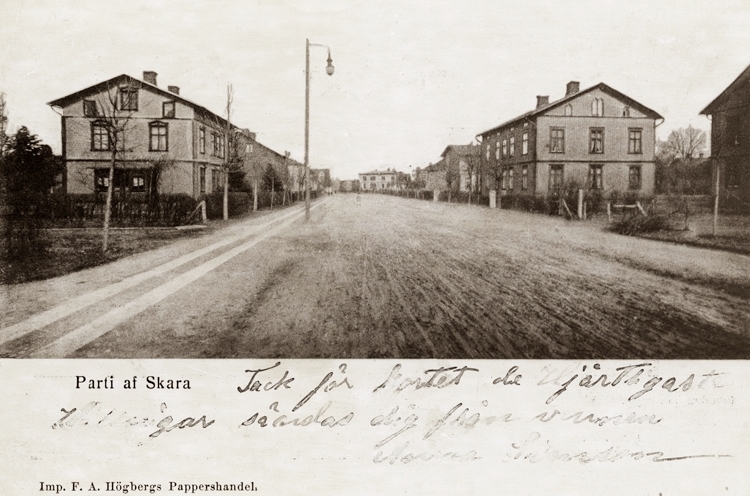 Parti af Skara
Tack för kortet de Hjärtligaste
Hälsningar sändas dig från vännen
Anna
Imp. F. A. Högbergs Pappershandel.